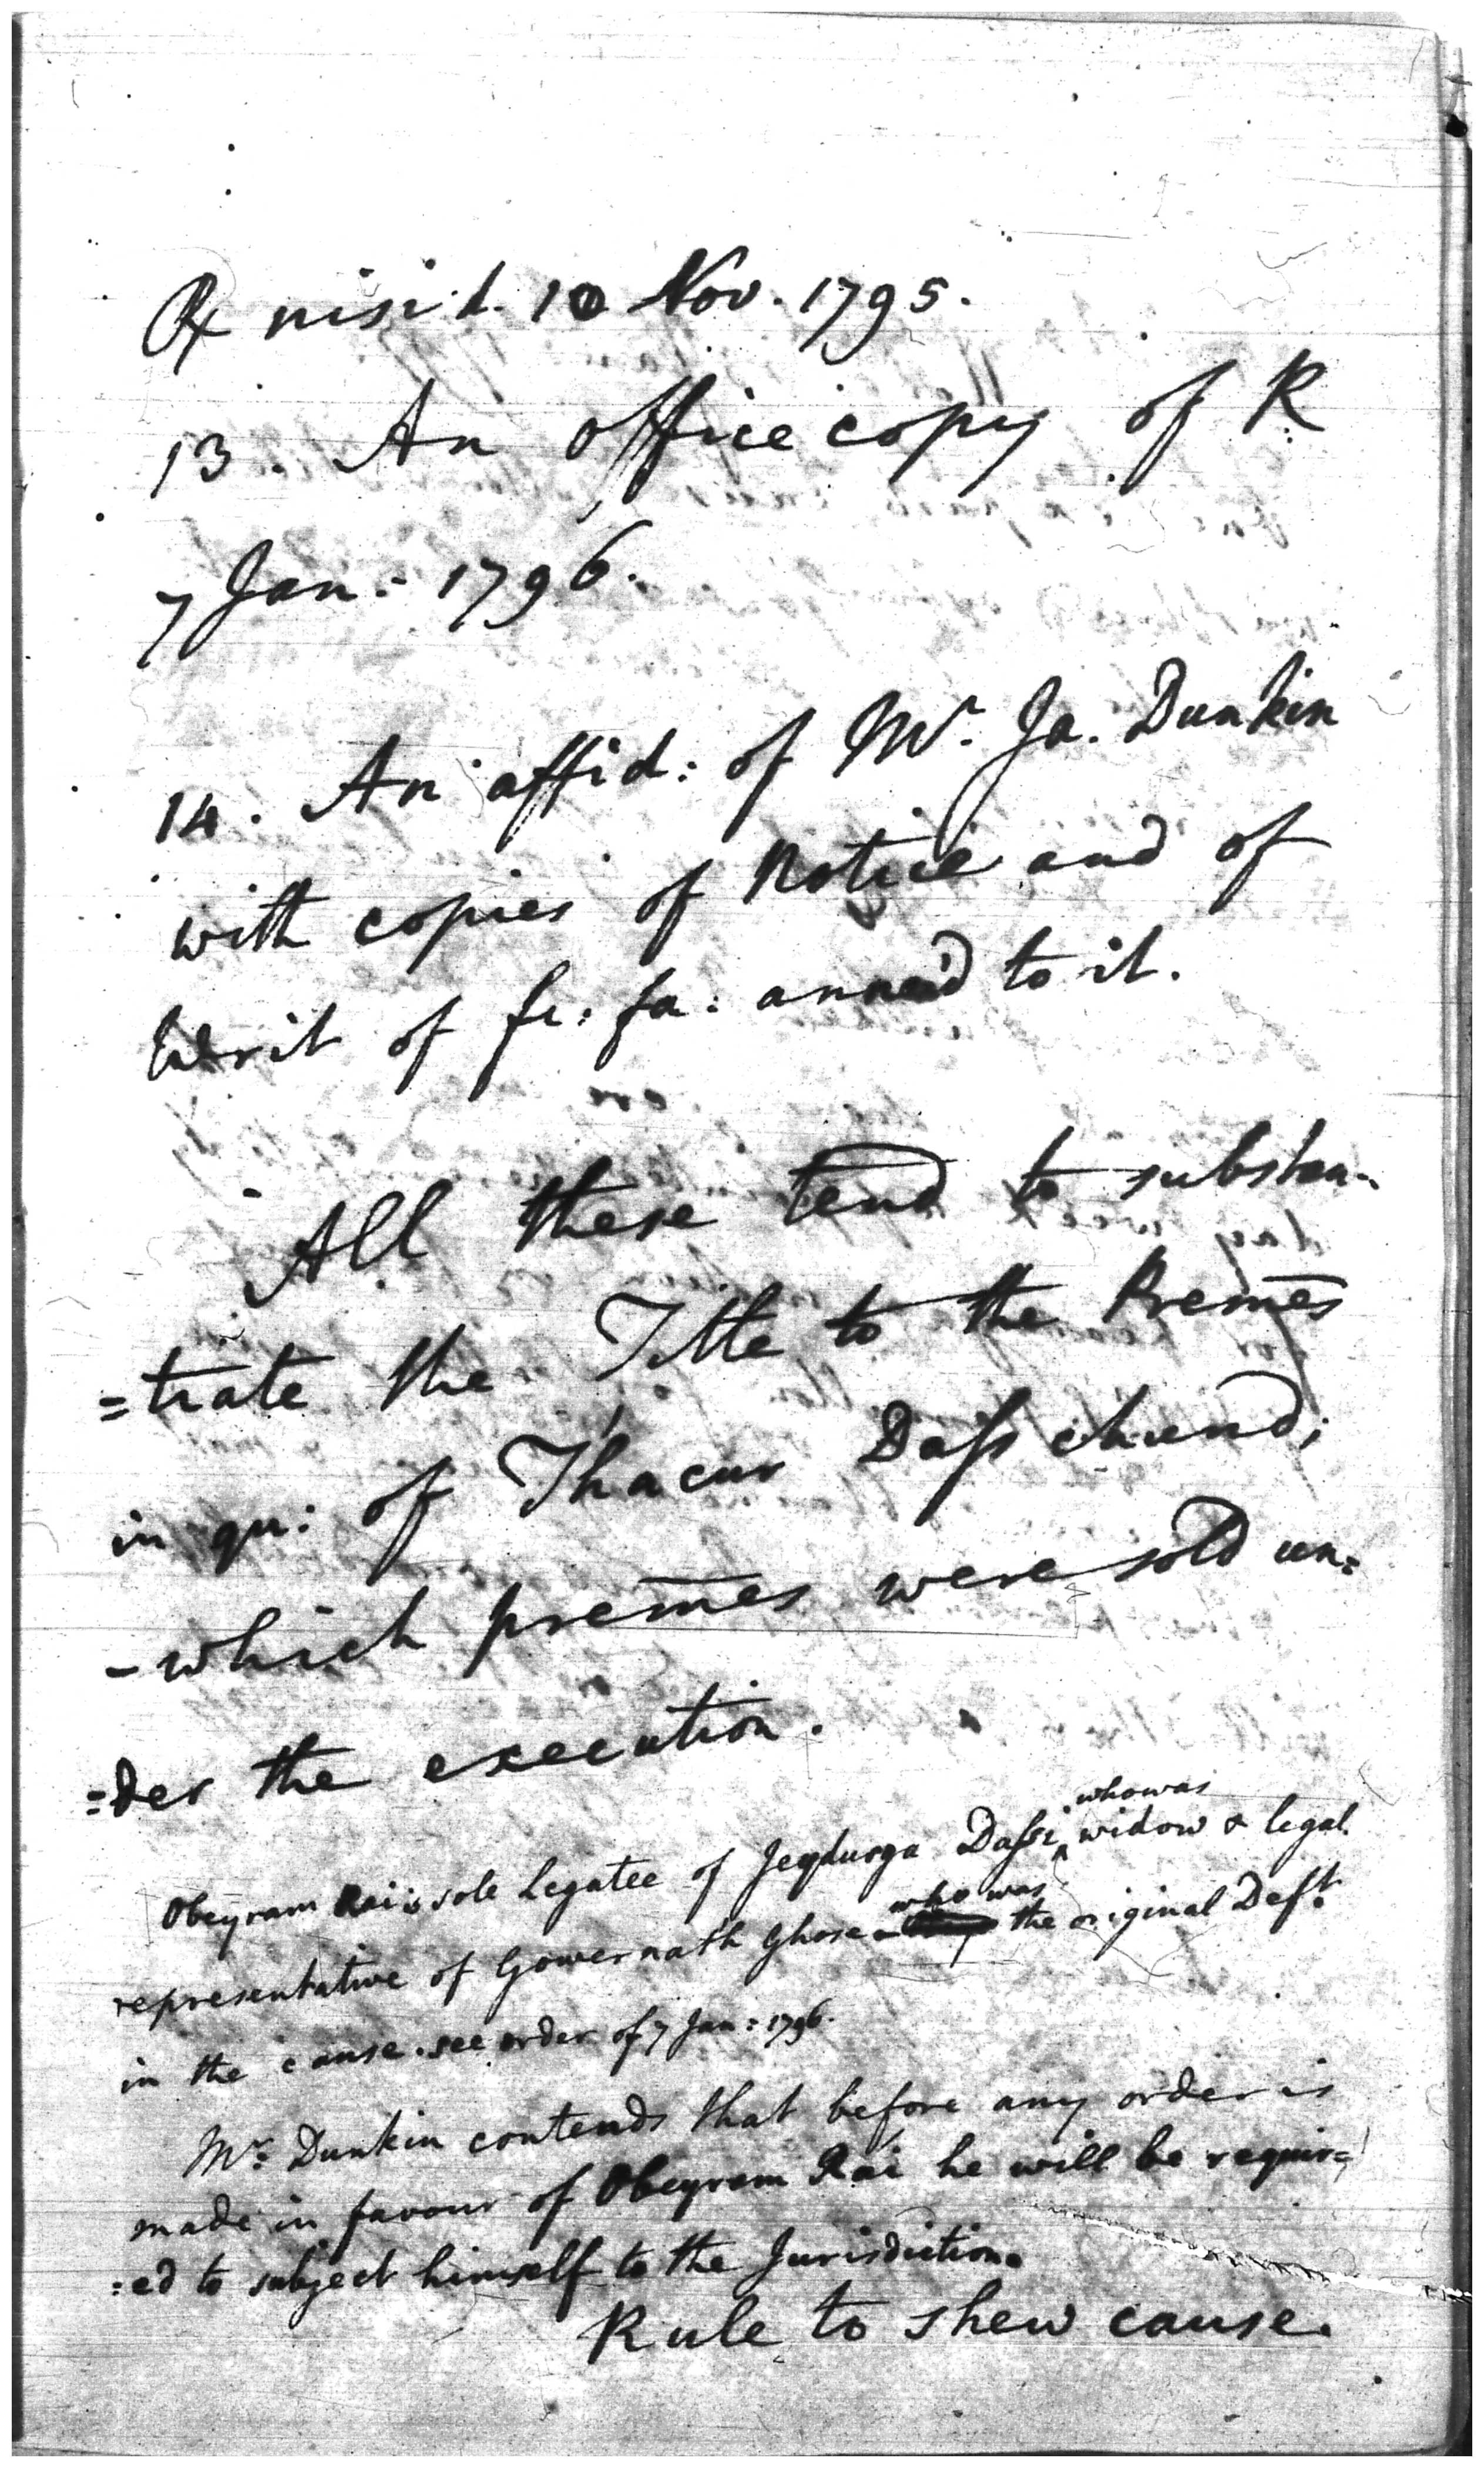 R nisi d. 10 Nov. 1795.
13. An office copy of R
7 Jan: 1796.
14. An affid: of Mr. Ja. Dunkin
with copies of Notice and of
Writ of fi: fa: annex'd to it.
All these tend to substan-
=trate the Title to the Premēs
in qu: of Thacur Dass chund;
-which premēs were sold un=
=der the execution.
Obeyram Rai is sole Legatee of Jeydurga Dassi, who was widow & legal
representative of Gowernath Ghose who was the original Deft.
in the cause. see order of 7 Jan: 1796.
Mr. Dunkin contends that before any order is
made in favour of Obeyram Rai he will be requir=
=ed to subject himself to the Jurisdiction.
Rule to shew cause.